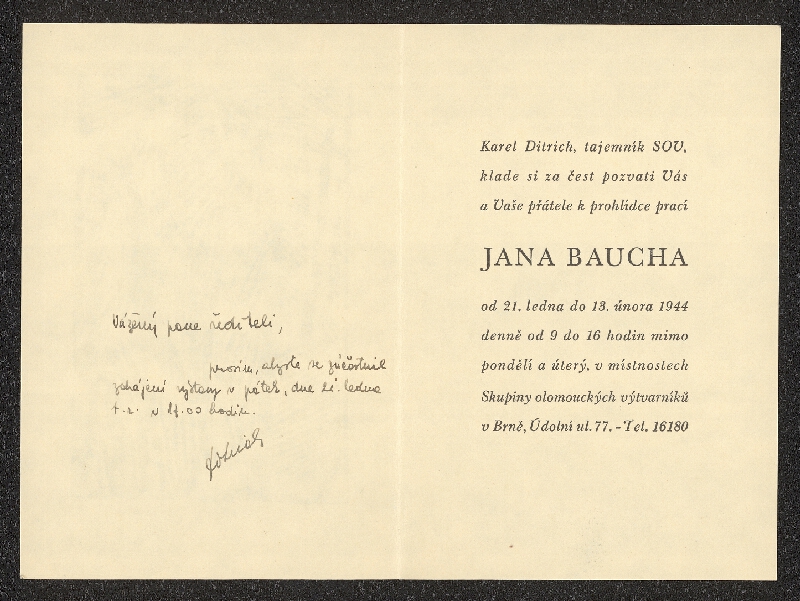 Vážený pane řediteli,
prosím, abyste se zúčastnil
zahájení výstavy v pátek, dne 21. ledna
t.r. v 17.00 hodin.
Karel Ditrich, tajemník SOV,
klade si za čest pozvati Vás
a Vaše přátele k prohlídce prací
JANA BAUCHA
od 21. ledna do 13. února 1944
denně od 9 do 16 hodin mimo
pondělí a úterý, v místnostech
Skupiny olomouckých výtvarníků
v Brně, Údolní ul. 77. - Tel. 16180